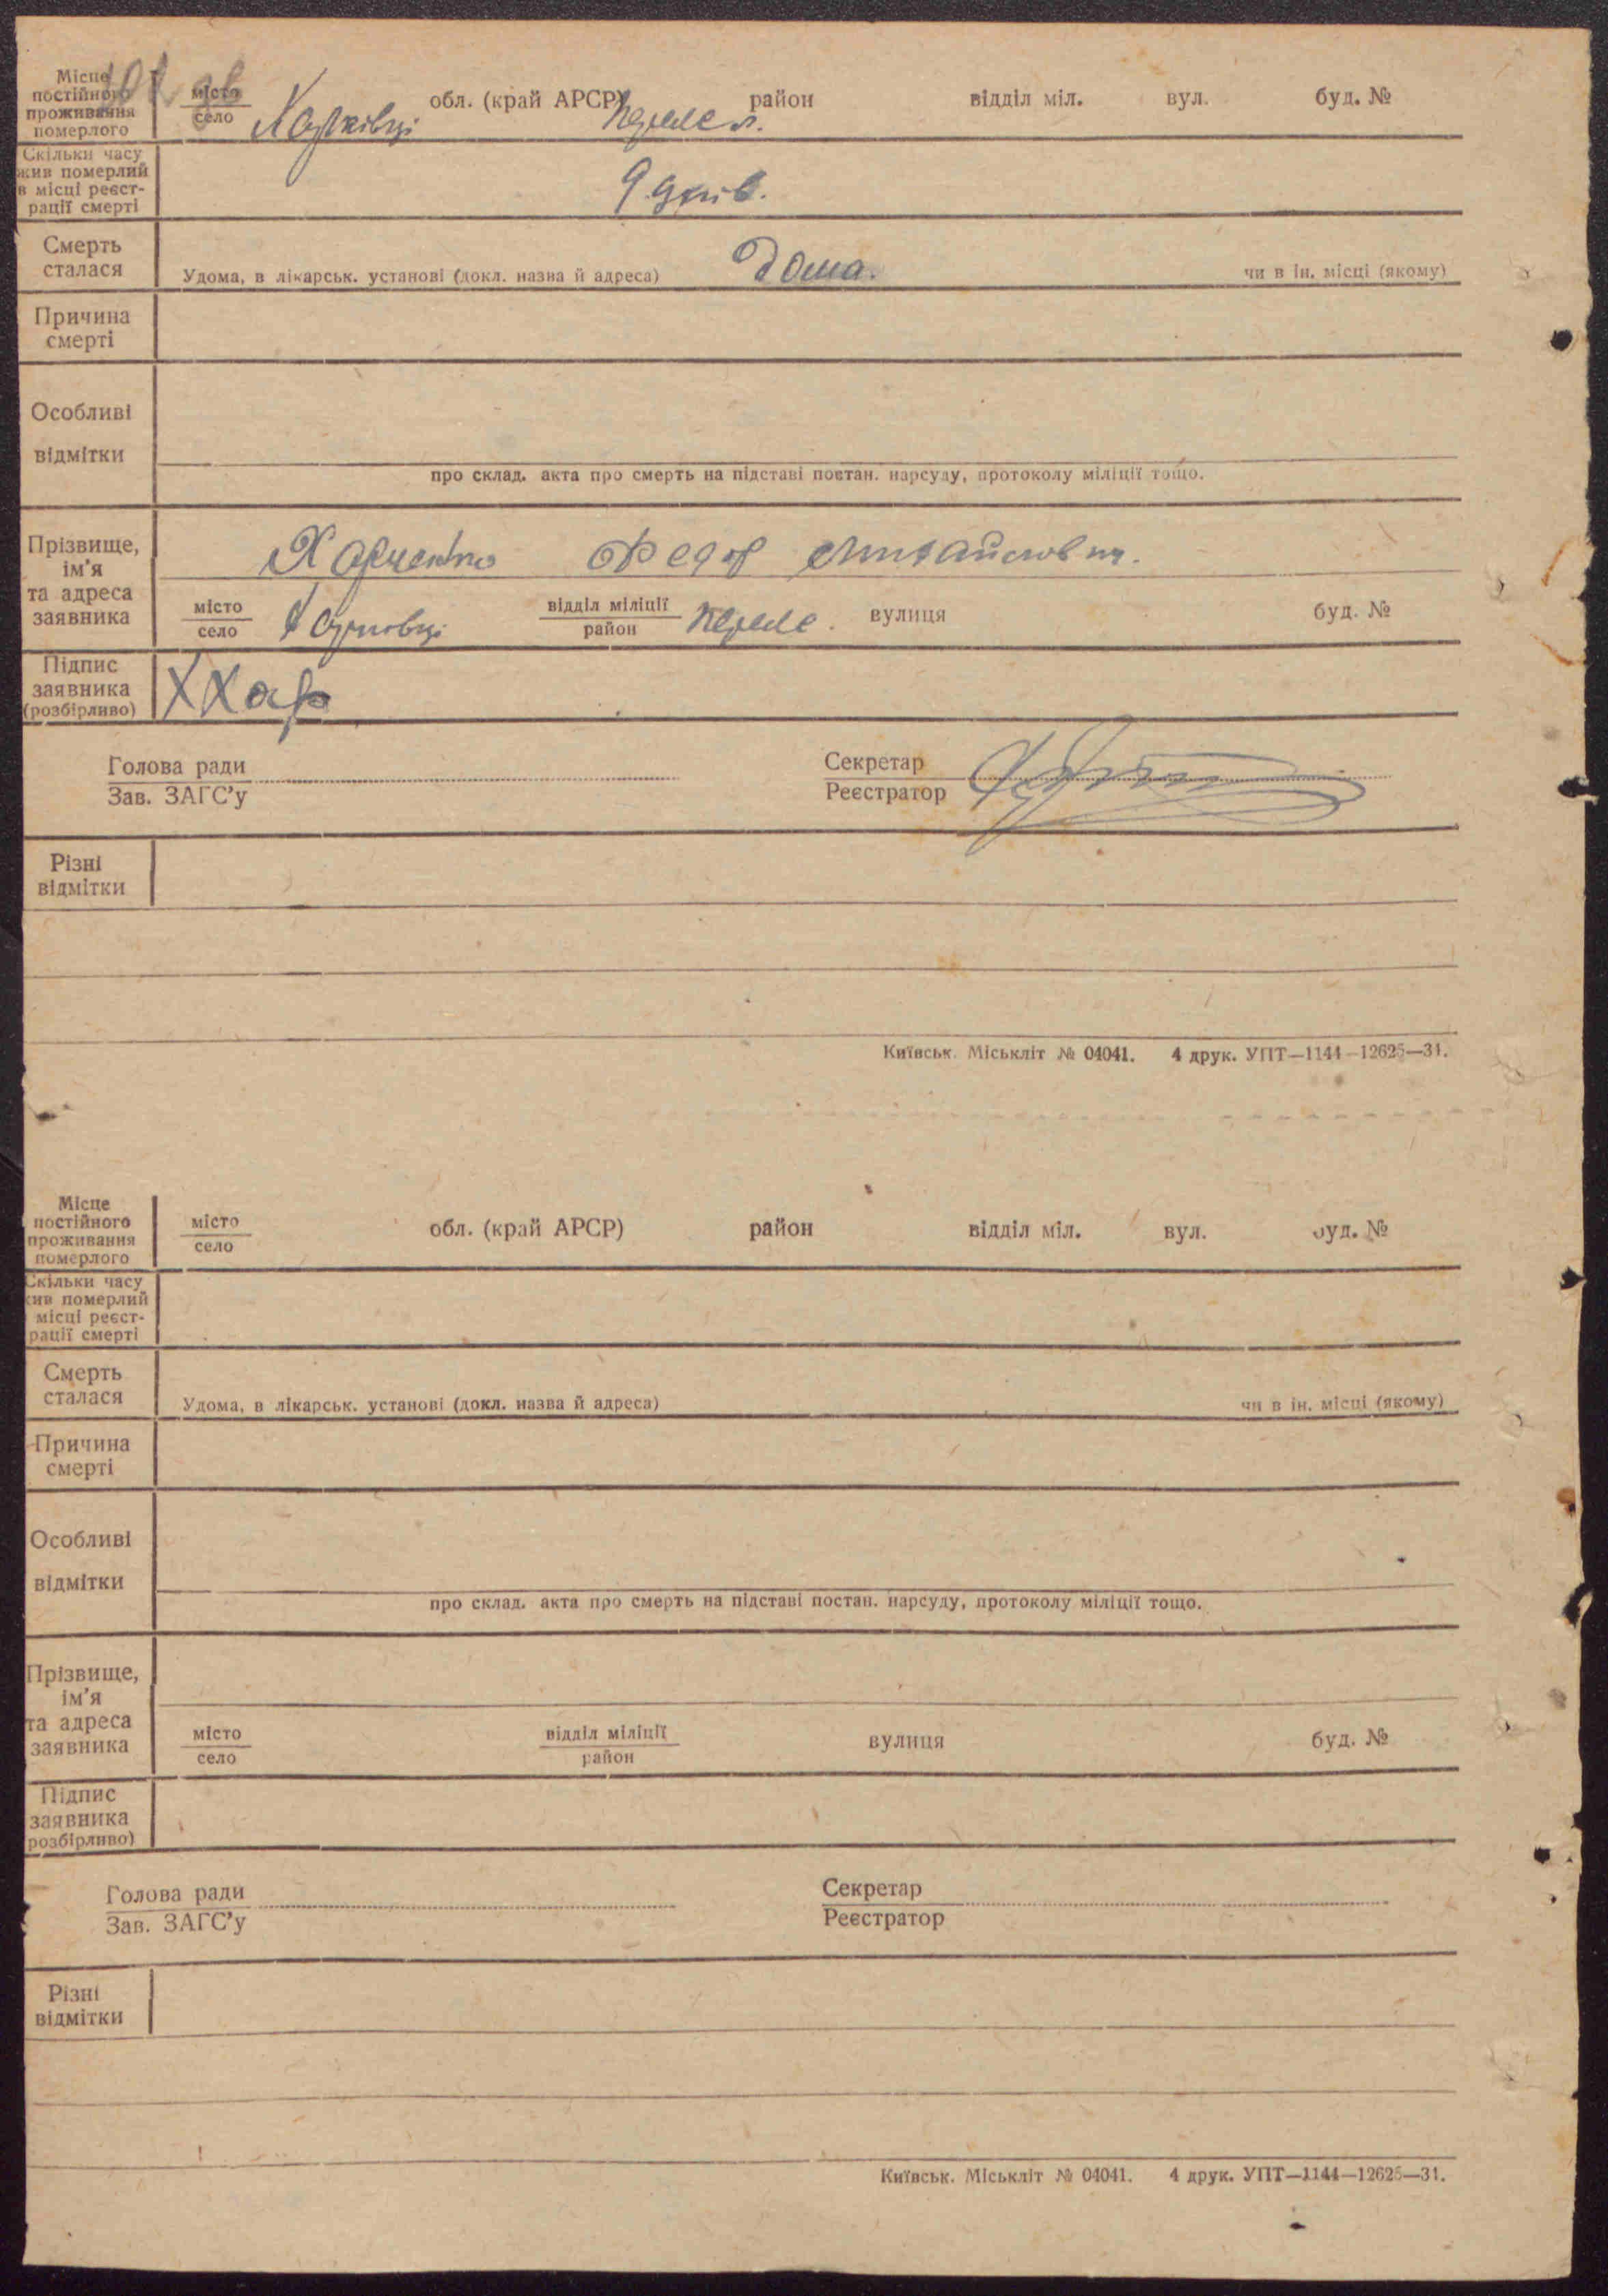 Місце
постійного
проживання
померлого
місто
село
Харківці
обл. (край АРСР)
район
відділ міл.
вул.
буд. №
Скільки часу
жив померлий
в місці реєст-
рації смерті
9 днів.
Смерть
сталася
Удома, в лікарськ. установі (докл. назва й адреса)
дома.
чи в ін. місці (якому)
Причина
смерті
Особливі
відмітки
про склад. акта про смерть на підставі постан. нарсуду, протоколу міліції тощо.
Прізвище,
ім'я
та адреса
заявника
Харченко Федор Михайлович.
місто
село
відділ міліції
район
вулиця
буд. №
Підпис
заявника
(розбірливо)
ХХар
Голова ради
Зав. ЗАГС'у
Секретар
Реєстратор
Різні
відмітки
Київськ. Міськліт № 04041. 4 друк. УПТ—1144—12625—31.
Місце
постійного
проживання
померлого
місто
село
обл. (край АРСР)
район
відділ міл.
вул.
буд. №
Скільки часу
жив померлий
місці реєст-
рації смерті
Смерть
сталася
Удома, в лікарськ. установі (докл. назва й адреса)
чи в ін. місці (якому)
Причина
смерті
Особливі
відмітки
про склад. акта про смерть на підставі постан. нарсуду, протоколу міліції тощо.
Прізвище,
ім'я
та адреса
заявника
місто
село
відділ міліції
район
вулиця
буд. №
Підпис
заявника
розбірливо)
Голова ради
Зав. ЗАГС'у
Секретар
Реєстратор
Різні
відмітки
Київськ. Міськліт № 04041. 4 друк. УПТ—1144—12625—31.